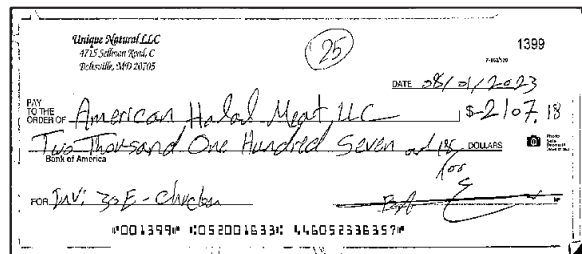 Unique Natural LLC
4715 Sellman Road, C
Beltsville, MD 20705
25
1399
DATE 08/01/2023
PAY TO THE ORDER OF American Halal Meat, LLC $-2107.18
Two Thousand One Hundred Seven and 18/100 DOLLARS
Bank of America
FOR Inv: 30E - chicken
⑈001399⑈ ⑆052001633⑆ 446052336357⑈